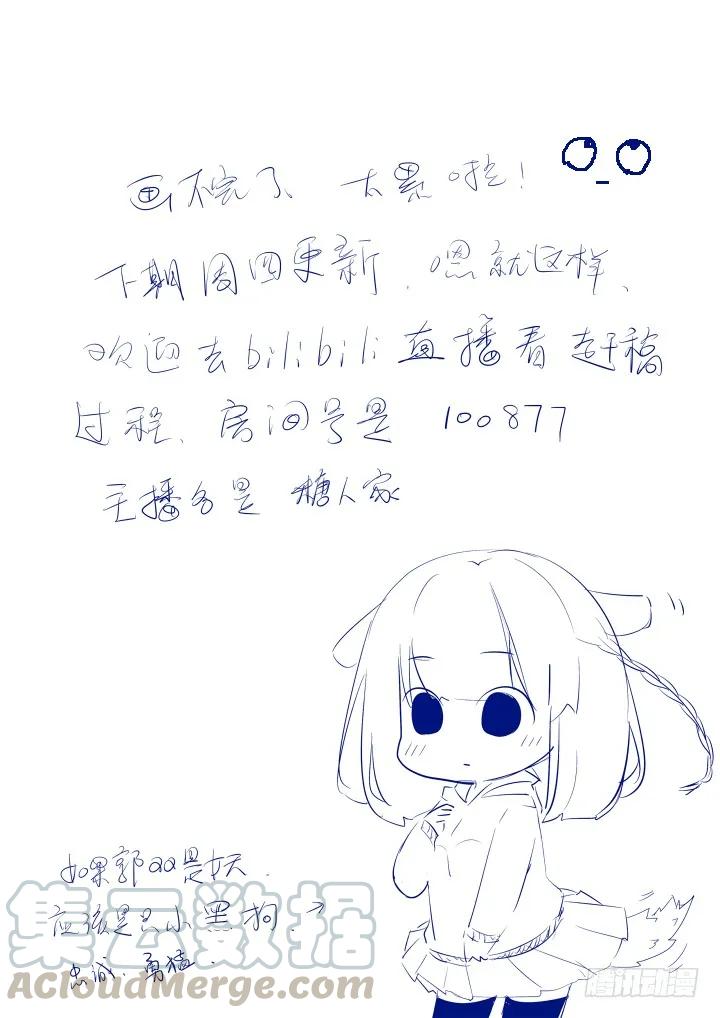 画不完了、太累啦!
下期周四更新,嗯就这样、
欢迎去bilibili直播看赶稿
过程、房间号是 100877
主播名是 糖人家
如果郭QQ是妖.
应该是只小黑狗.?
忠诚.勇猛.
集云数据
AcloudMerge.com
腾讯动漫